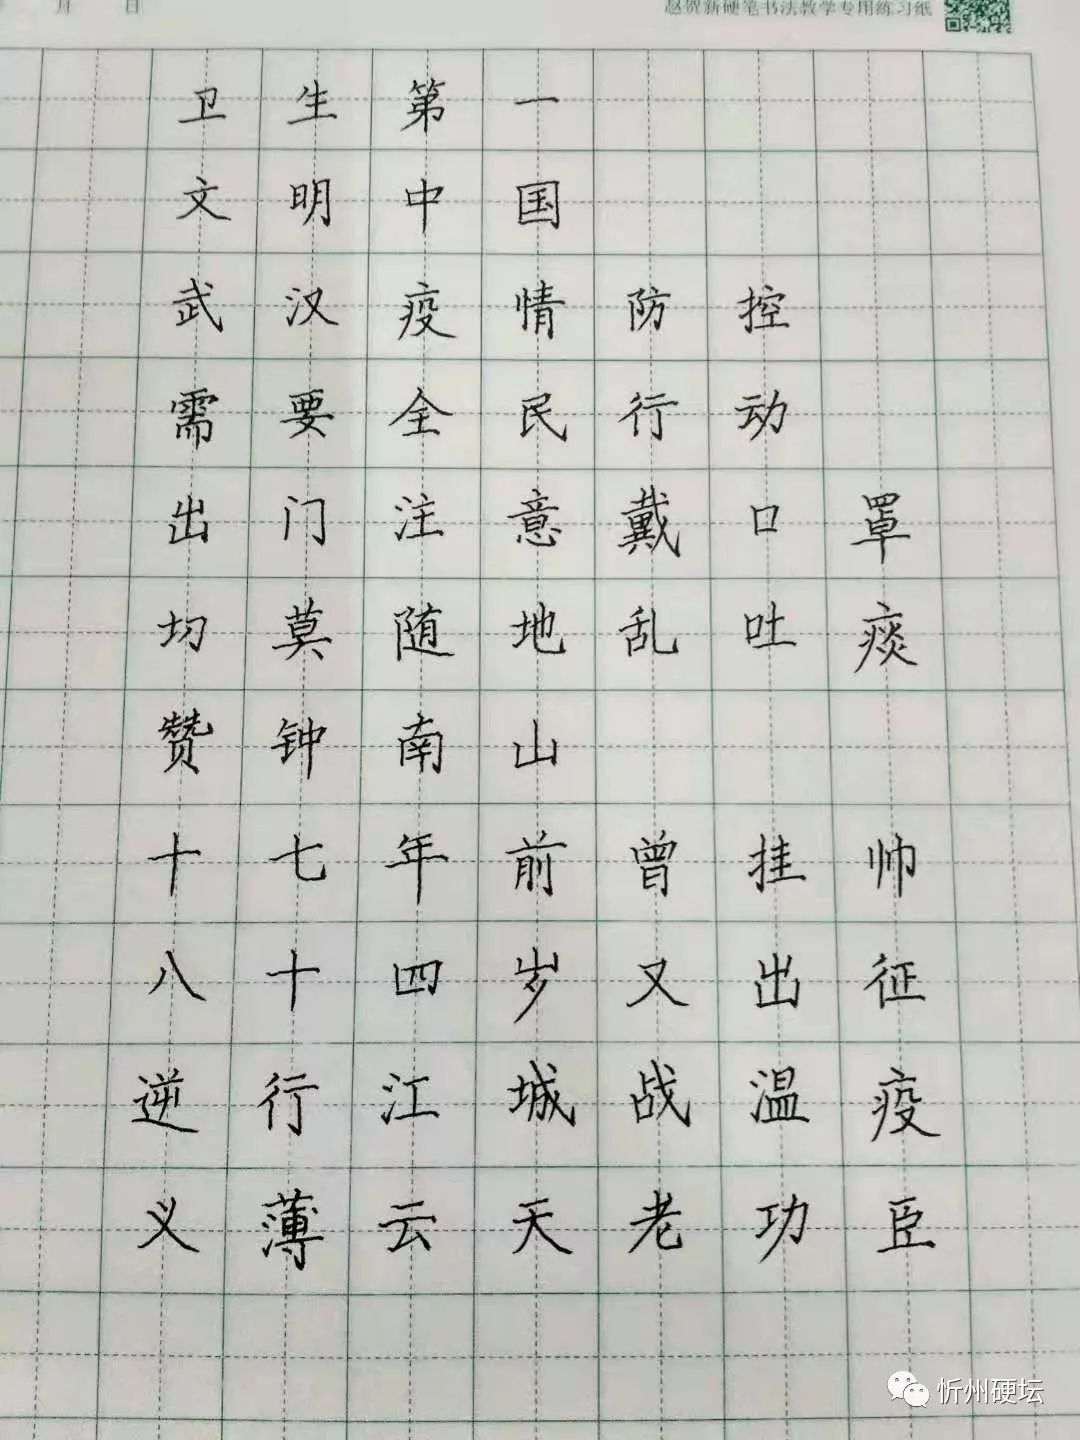 月 日 赵贺新硬笔书法教学专用练习纸
卫生第一
文明中国
武汉疫情防控
需要全民行动
出门注意戴口罩
切莫随地乱吐痰
赞钟南山
十七年前曾挂帅
八十四岁又出征
逆行江城战温疫
义薄云天老功臣
忻州硬坛